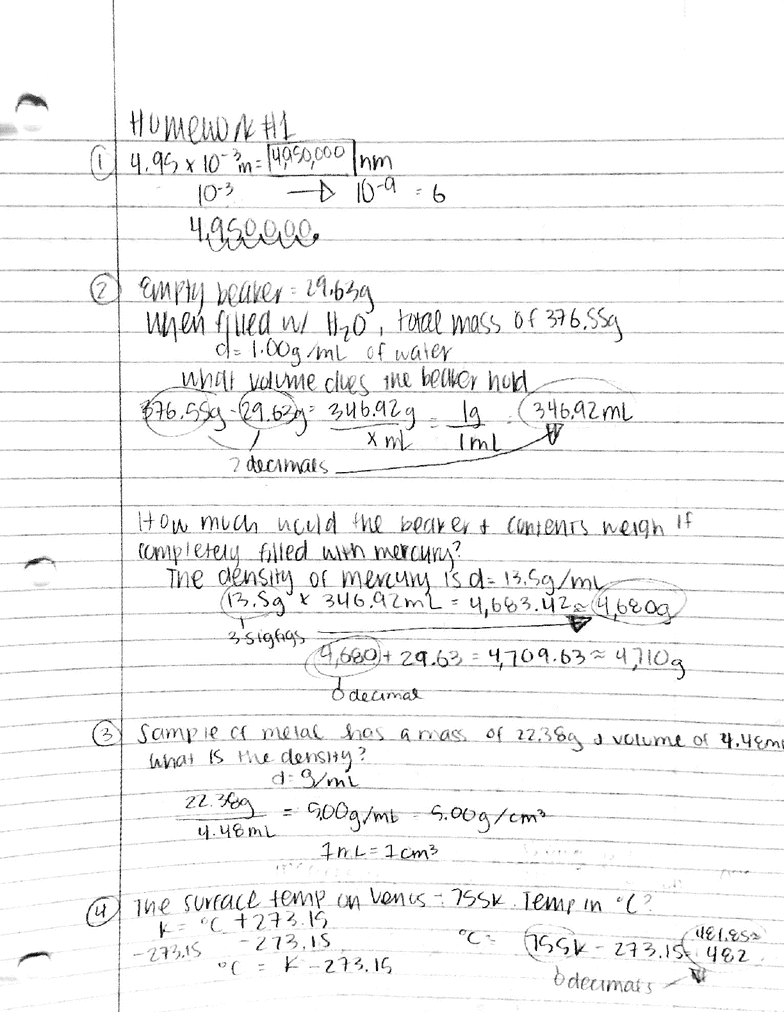 Homework #1
① 4.95 x 10⁻³m = 4,950,000 nm
10⁻³ → 10⁻⁹ = 6
4,950,000.
② Empty beaker = 29.63g
When filled w/ H₂O, total mass of 376.55g
d = 1.00g/mL of water
What volume does the beaker hold
376.55g - 29.63g = 346.92g / x mL = 1g / 1mL = 346.92 mL
2 decimals
How much would the beaker + contents weigh if
completely filled with mercury?
The density of mercury is d = 13.5g/mL
13.5g x 346.92mL = 4,683.42 ≈ 4,680g
3 sigfigs
4,680 + 29.63 = 4,709.63 ≈ 4,710g
0 decimal
③ Sample of metal has a mass of 22.38g & volume of 4.48m
What is the density?
d = g/mL
22.38g / 4.48mL = 5.00g/mL = 5.00g/cm³
1mL = 1cm³
④ The surface temp on Venus = 755K. Temp in °C?
K = °C + 273.15
-273.15 -273.15
°C = K - 273.15
°C = 755K - 273.15 = 481.85≈ 482
0 decimals